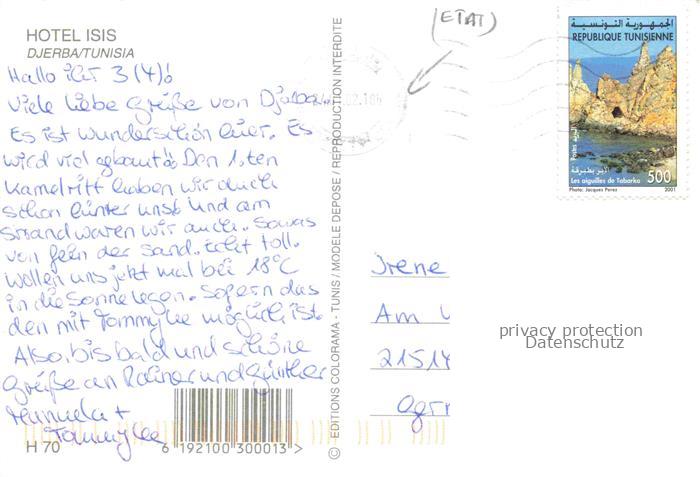 HOTEL ISIS
DJERBA/TUNISIA
Hallo ihr 3 (4)!
Viele liebe Grüße von Djerba.
Es ist wunderschön hier. Es
wird viel gebaut! Den 1.ten
Kamelritt haben wir auch
schon hinter uns! Und am
Strand waren wir auch. Sowas
von fein der Sand. Echt toll.
Wollen uns jetzt mal bei 18°C
in die Sonne legen. Sofern das
den mit Tommylee möglich ist.
Also, bis bald und schöne
Grüße an Rainer und Günther
Manuela +
Tommylee
H 70
6 192100 300013 >
© EDITIONS COLORAMA - TUNIS / MODELE DEPOSE / REPRODUCTION INTERDITE
(ETAT)
الجمهورية التونسية
REPUBLIQUE TUNISIENNE
الإبر بطبرقة
Les aiguilles de Tabarka
500
Photo: Jacques Perez
2001
Irene
Am
21514
Ger
privacy protection
Datenschutz